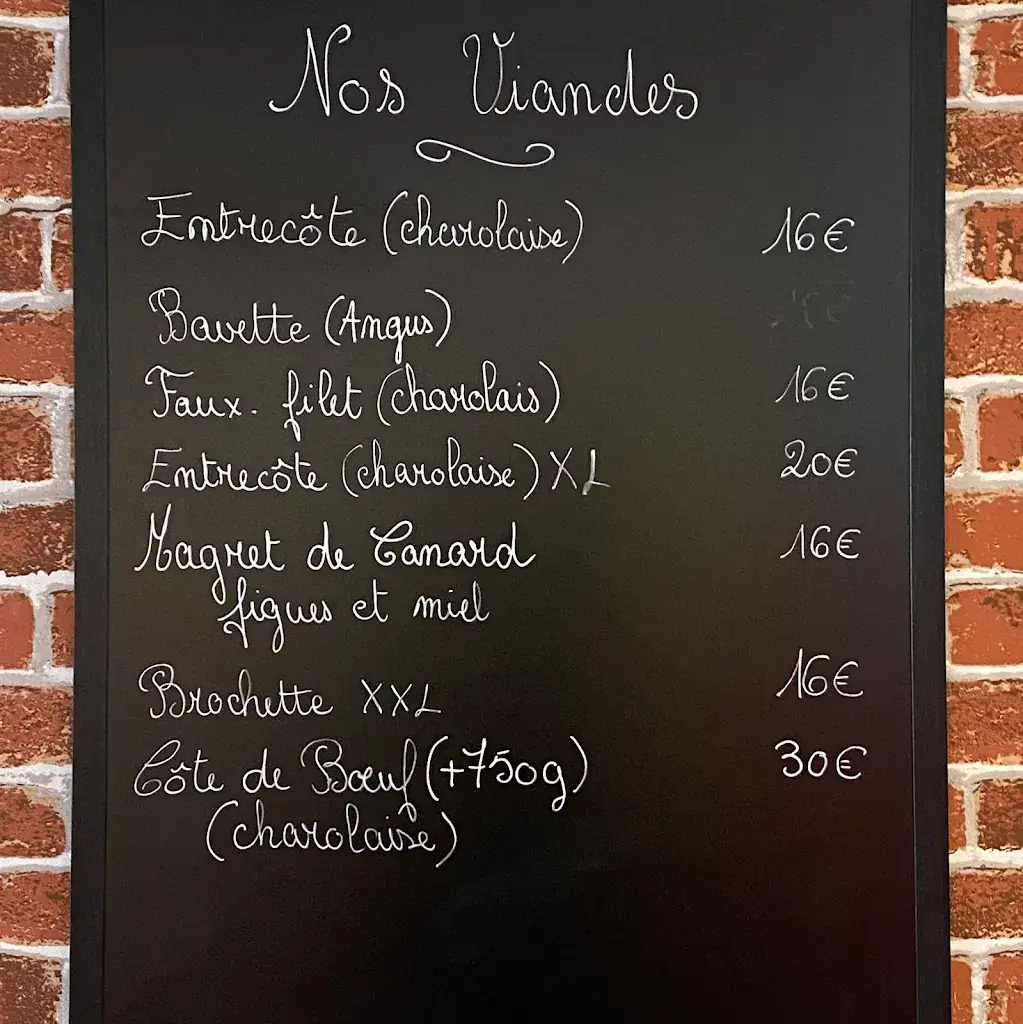 Nos Viandes
Entrecôte (charolaise) 16€
Bavette (Angus)
Faux-filet (charolais) 16€
Entrecôte (charolaise) XL 20€
Magret de Canard 16€
figues et miel
Brochette XXL 16€
Côte de Bœuf (+750g) 30€
(charolaise)